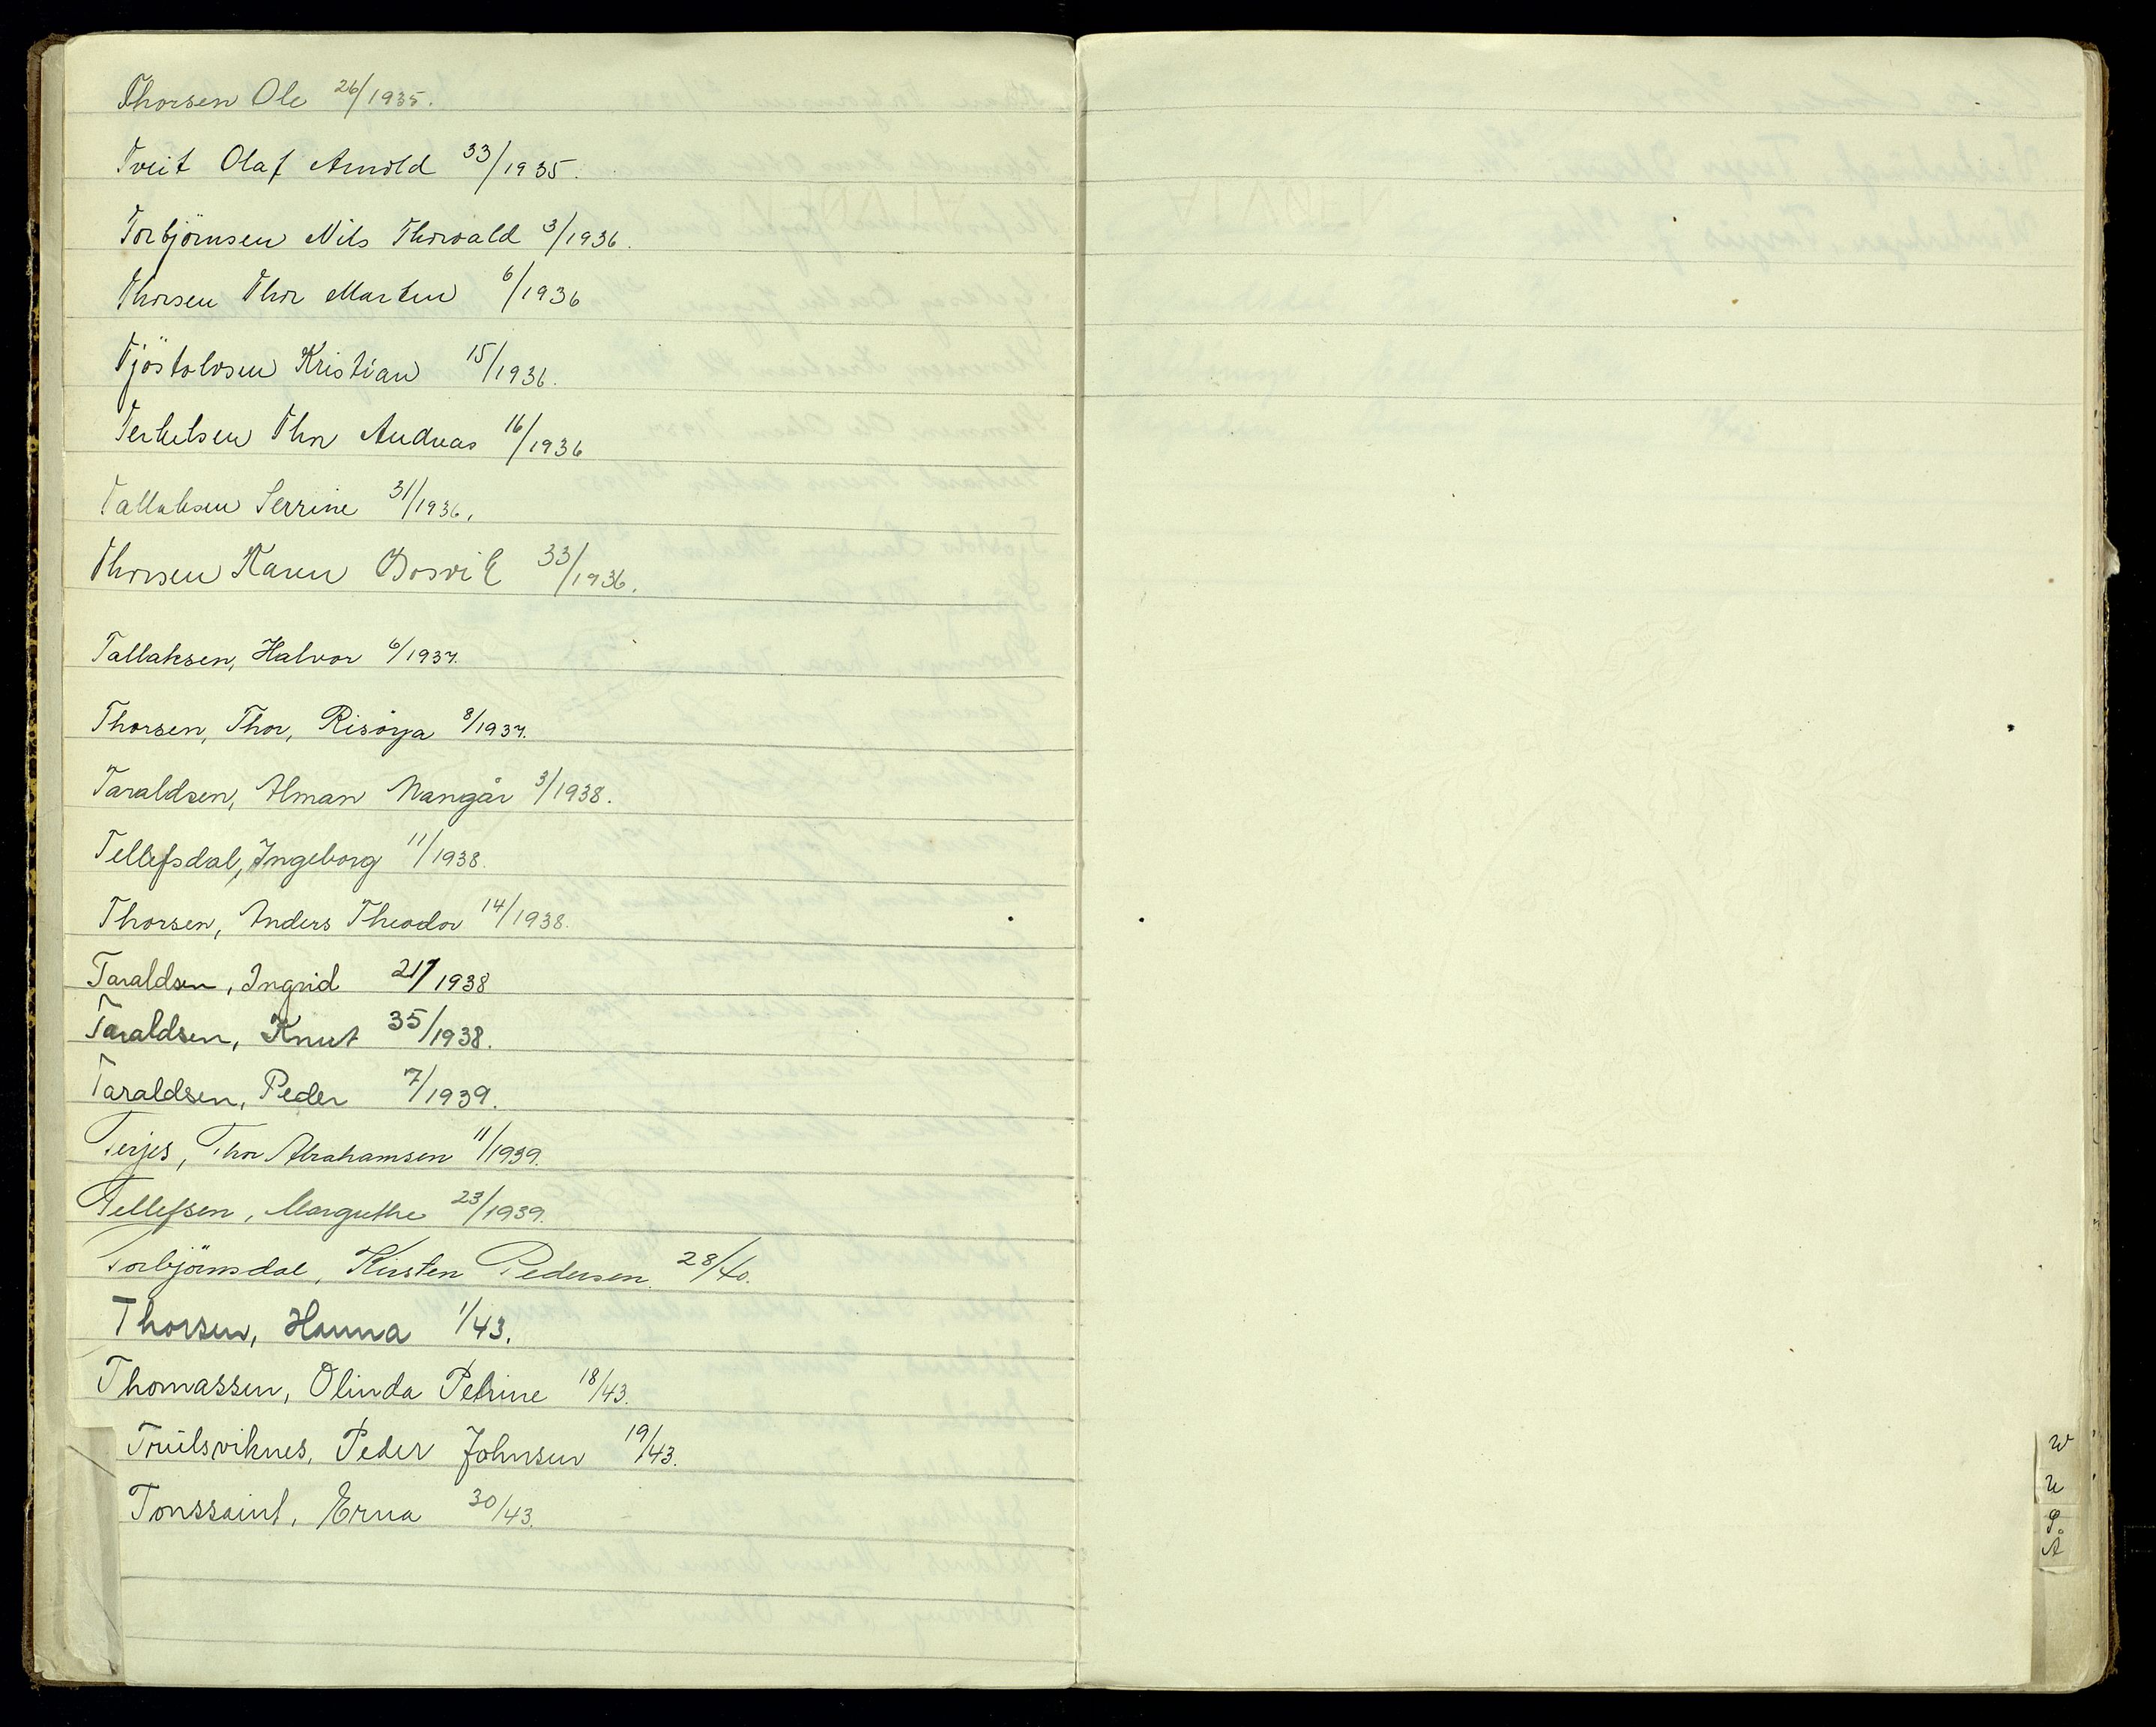 Thorsen Ole 26/1935.
Tveit Olaf Arnold 33/1935.
Torbjörnsen Nils Thorvald 3/1936.
Thorsen Thor Marten 6/1936
Tjöstolvsen Kristian 15/1936.
Terkelsen Thor Andreas 16/1936
Tallaksen Serrine 31/1936.
Thorsen Karen Bosvik 33/1936.
Tallaksen, Halvor 6/1937.
Thorsen, Thor, Risöya 8/1937.
Taraldsen, Alman Nangår 3/1938.
Tellefsdal, Ingeborg 11/1938.
Thorsen, Anders Theodor 14/1938.
Taraldsen, Ingrid 21/1938
Taraldsen, Knut 35/1938.
Taraldsen, Peder 7/1939.
Terjes, Thor Abrahamsen 11/1939.
Tellefsen, Margrethe 23/1939.
Torbjörnsdal, Kirsten Pedersen. 28/40.
Thorsen, Hanna 1/43.
Thomassen, Olinda Petrine 18/43.
Truilsviknes, Peder Johnsen 19/43.
Tonssaint, Erna 30/43.
W
U
P.
A